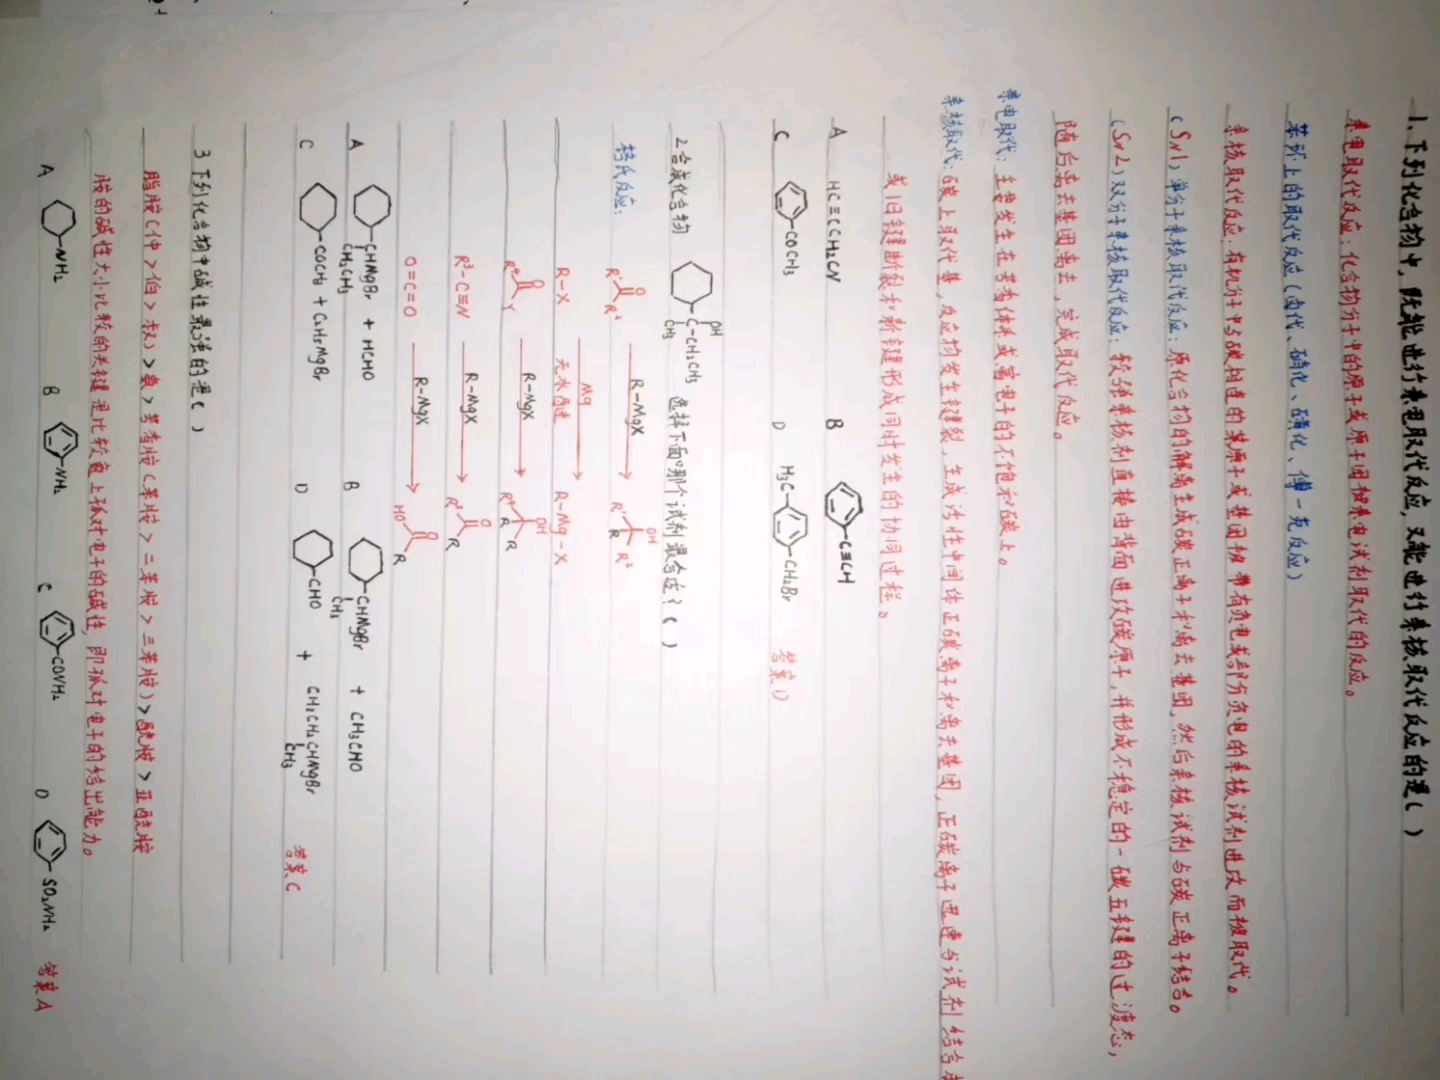 1、下列化合物中，既能进行亲电取代反应，又能进行亲核取代反应的是( )
亲电取代反应：化合物分子中的原子或原子团被亲电试剂取代的反应。
苯环上的取代反应(卤代、硝化、磺化、傅一克反应)
亲核取代反应：有机分子中与碳相连的某原子或基团被带有负电或部分负电的亲核试剂进攻而被取代。
(SN1)单分子亲核取代反应：原化合物的解离生成碳正离子和离去基团，然后亲核试剂与碳正离子结合。
(SN2)双分子亲核取代反应：较强亲核剂直接由背面进攻碳原子，并形成不稳定的一碳五键的过渡态，
随后离去基团离去，完成取代反应。
亲电取代：主要发生在芳香体系或富电子的不饱和碳上。
亲核取代：碳上取代基，反应物发生键裂，生成活性中间体正碳离子和离去基团，正碳离子迅速与试剂结合
或旧键断裂和新键形成同时发生的协同过程。
A HC≡CCH₂CN B C≡CH
C COCH₃ D H₃C CH₂Br 答案D
2 合成化合物 OH C-CH₂CH₃ CH₃ 选择下面哪个试剂最合适？( )
格氏反应： R¹ O R² R-MgX R¹ OH R R²
R-X Mg 无水乙醚 R-Mg-X
R⁴ O Y R-MgX R⁴ OH R R
R³-C≡N R-MgX R³ O R
O=C=O R-MgX HO O R
A CHMgBr CH₂CH₃ + HCHO B CHMgBr CH₃ + CH₃CHO
C COCH₃ + C₂H₅MgBr D CHO + CH₃CH₂CHMgBr CH₃ 答案C
3 下列化合物中碱性最强的是( )
脂胺(仲>伯>叔)>氨>芳香胺(苯胺>二苯胺>三苯胺)>酰胺>亚酰胺
胺的碱性大小比较的关键是比较氮上孤对电子的碱性，即孤对电子的给出能力。
A NH₂ B NH₂ C CONH₂ D SO₂NH₂ 答案A